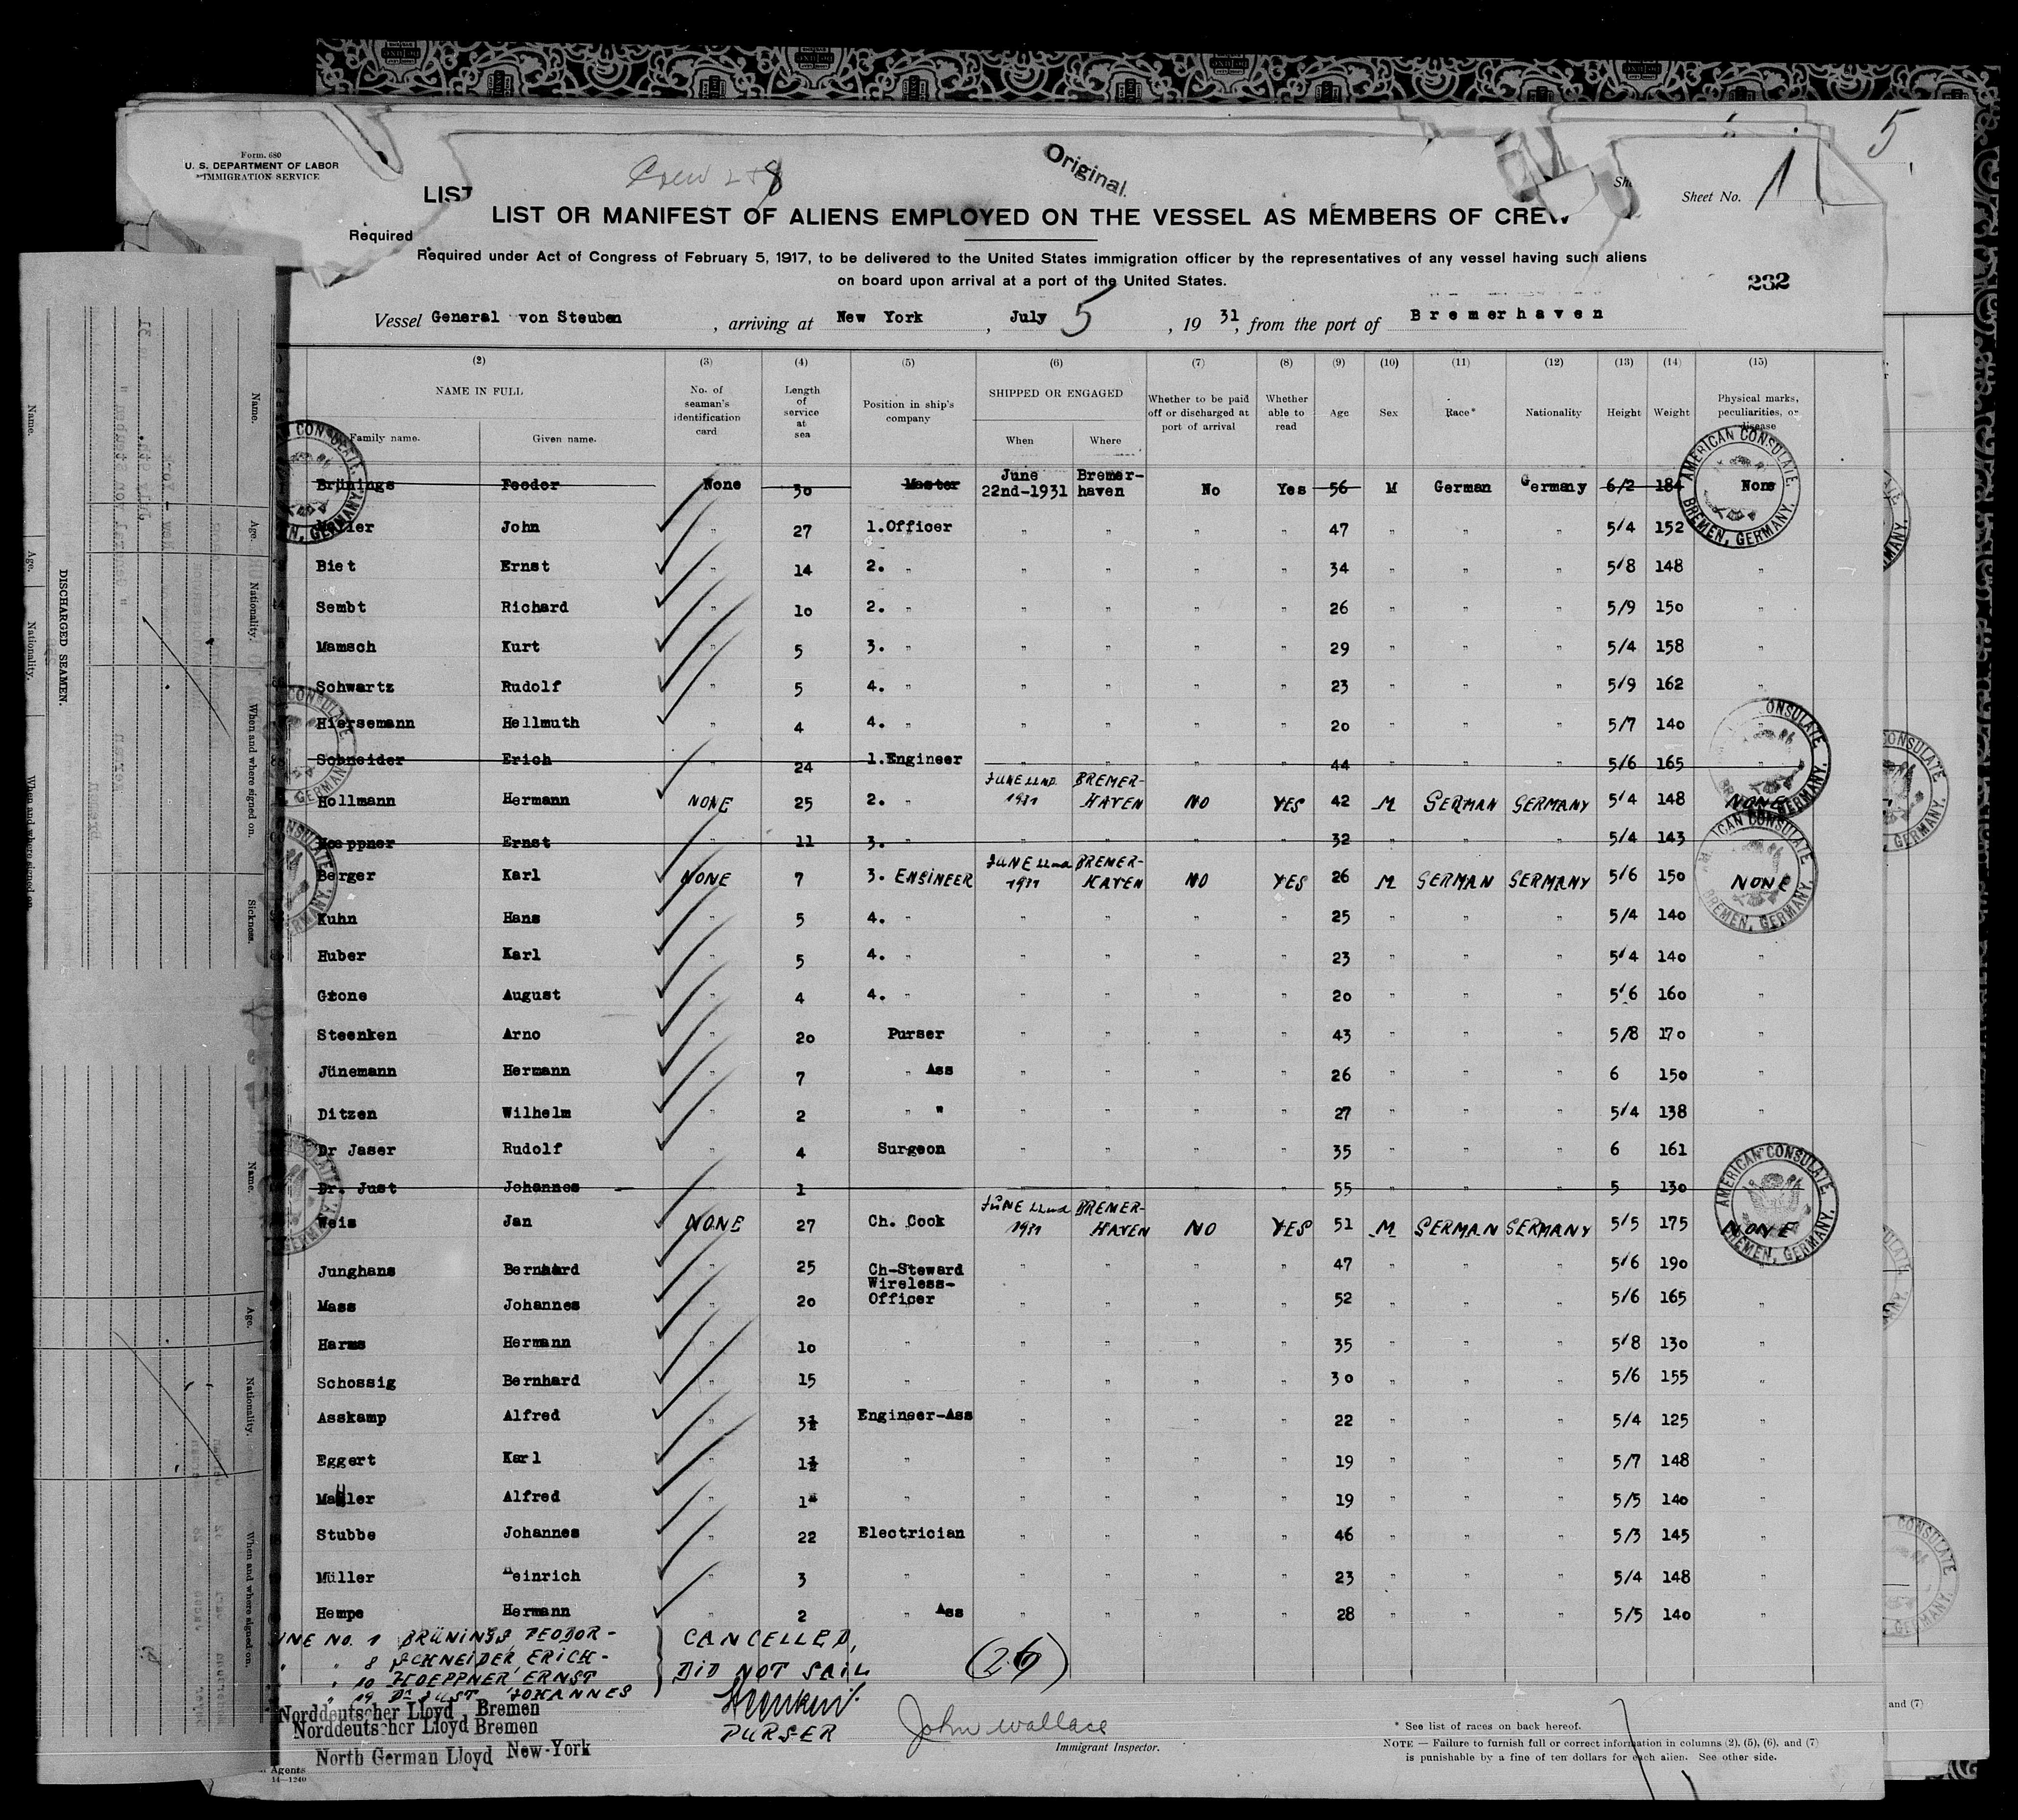 Form. 680
U. S. DEPARTMENT OF LABOR
IMMIGRATION SERVICE
Crew
Original
5
LIST
Sheet No. 1
LIST OR MANIFEST OF ALIENS EMPLOYED ON THE VESSEL AS MEMBERS OF CREW
Required
Required under Act of Congress of February 5, 1917, to be delivered to the United States immigration officer by the representatives of any vessel having such aliens
on board upon arrival at a port of the United States.
232
Vessel General von Steuben, arriving at New York, July 5, 1931, from the port of Bremerhaven
(2) (3) (4) (5) (6) (7) (8) (9) (10) (11) (12) (13) (14) (15)
NAME IN FULL Family name. Given name. No. of seaman's identification card Length of service at sea Position in ship's company SHIPPED OR ENGAGED When Where Whether to be paid off or discharged at port of arrival Whether able to read Age Sex Race* Nationality Height Weight Physical marks, peculiarities, or disease
Brünings Feodor None 30 Master June 22nd-1931 Bremer-haven No Yes 56 M German Germany 6/2 184 None
John " 27 1.Officer " " " " 47 " " " 5/4 152
Biet Ernst " 14 2. " " " " " 34 " " " 5/8 148 "
Sembt Richard " 10 2. " " " " " 26 " " " 5/9 150 "
Mamsch Kurt " 5 3. " " " " " 29 " " " 5/4 158 "
Schwartz Rudolf " 5 4. " " " " " 23 " " " 5/9 162 "
Hiersemann Hellmuth " 4 4. " " " " " 20 " " " 5/7 140
Schneider Erich " 24 1.Engineer " " " " 44 " " " 5/6 165
Hollmann Hermann NONE 25 2. " JUNE 22ND 1931 BREMER-HAVEN NO YES 42 M GERMAN GERMANY 5/4 148 NONE
Hoeppner Ernst " 11 3. " " " " " 32 " " " 5/4 143
Berger Karl NONE 7 3. ENGINEER JUNE 22nd 1931 BREMER-HAVEN NO YES 26 M GERMAN GERMANY 5/6 150 NONE
Kuhn Hans " 5 4. " " " " " 25 " " " 5/4 140
Huber Karl " 5 4. " " " " " 23 " " " 5/4 140 "
Grone August " 4 4. " " " " " 20 " " " 5/6 160 "
Steenken Arno " 20 Purser " " " " 43 " " " 5/8 170 "
Jünemann Hermann " 7 " Ass " " " " 26 " " " 6 150 "
Ditzen Wilhelm " 2 " " " " " " 27 " " " 5/4 138 "
Dr Jaser Rudolf " 4 Surgeon " " " " 35 " " " 6 161
Dr. Just Johannes 1 " " " " " 55 " " " 5 130
Weis Jan NONE 27 Ch. Cook JUNE 22nd 1931 BREMER-HAVEN NO YES 51 M GERMAN GERMANY 5/5 175 NONE
Junghans Bernhard " 25 Ch-Steward " " " " 47 " " " 5/6 190 "
Mass Johannes " 20 Wireless-Officer " " " " 52 " " " 5/6 165 "
Harms Hermann " 10 " " " " " 35 " " " 5/8 130 "
Schossig Bernhard " 15 " " " " " 30 " " " 5/6 155 "
Asskamp Alfred " 3½ Engineer-Ass " " " " 22 " " " 5/4 125 "
Eggert Karl " 1½ " " " " " 19 " " " 5/7 148 "
Alfred " 1" " " " " " 19 " " " 5/5 140 "
Stubbe Johannes " 22 Electrician " " " " 46 " " " 5/3 145 "
Müller Heinrich " 3 " " " " " 23 " " " 5/4 148 "
Hempe Hermann " 2 " Ass " " " " 28 " " " 5/5 140 "
INE NO. 1 BRÜNINGS, FEODOR -
" " 8 SCHNEIDER ERICH -
" 10 HOEPPNER ERNST
" 19 Dr JUST JOHANNES
CANCELLED,
DID NOT SAIL
PURSER
(26)
John Wallace
Immigrant Inspector.
Norddeutscher Lloyd Bremen
Norddeutscher Lloyd Bremen
North German Lloyd New-York
Agents
14—1240
* See list of races on back hereof.
NOTE — Failure to furnish full or correct information in columns (2), (5), (6), and (7)
is punishable by a fine of ten dollars for each alien. See other side.
and (7)
AMERICAN CONSULATE
BREMEN, GERMANY.
DISCHARGED SEAMEN.
Name.
Age.
Nationality.
When and where signed on.
Sickness.
Name.
Age.
Nationality.
When and where signed on.